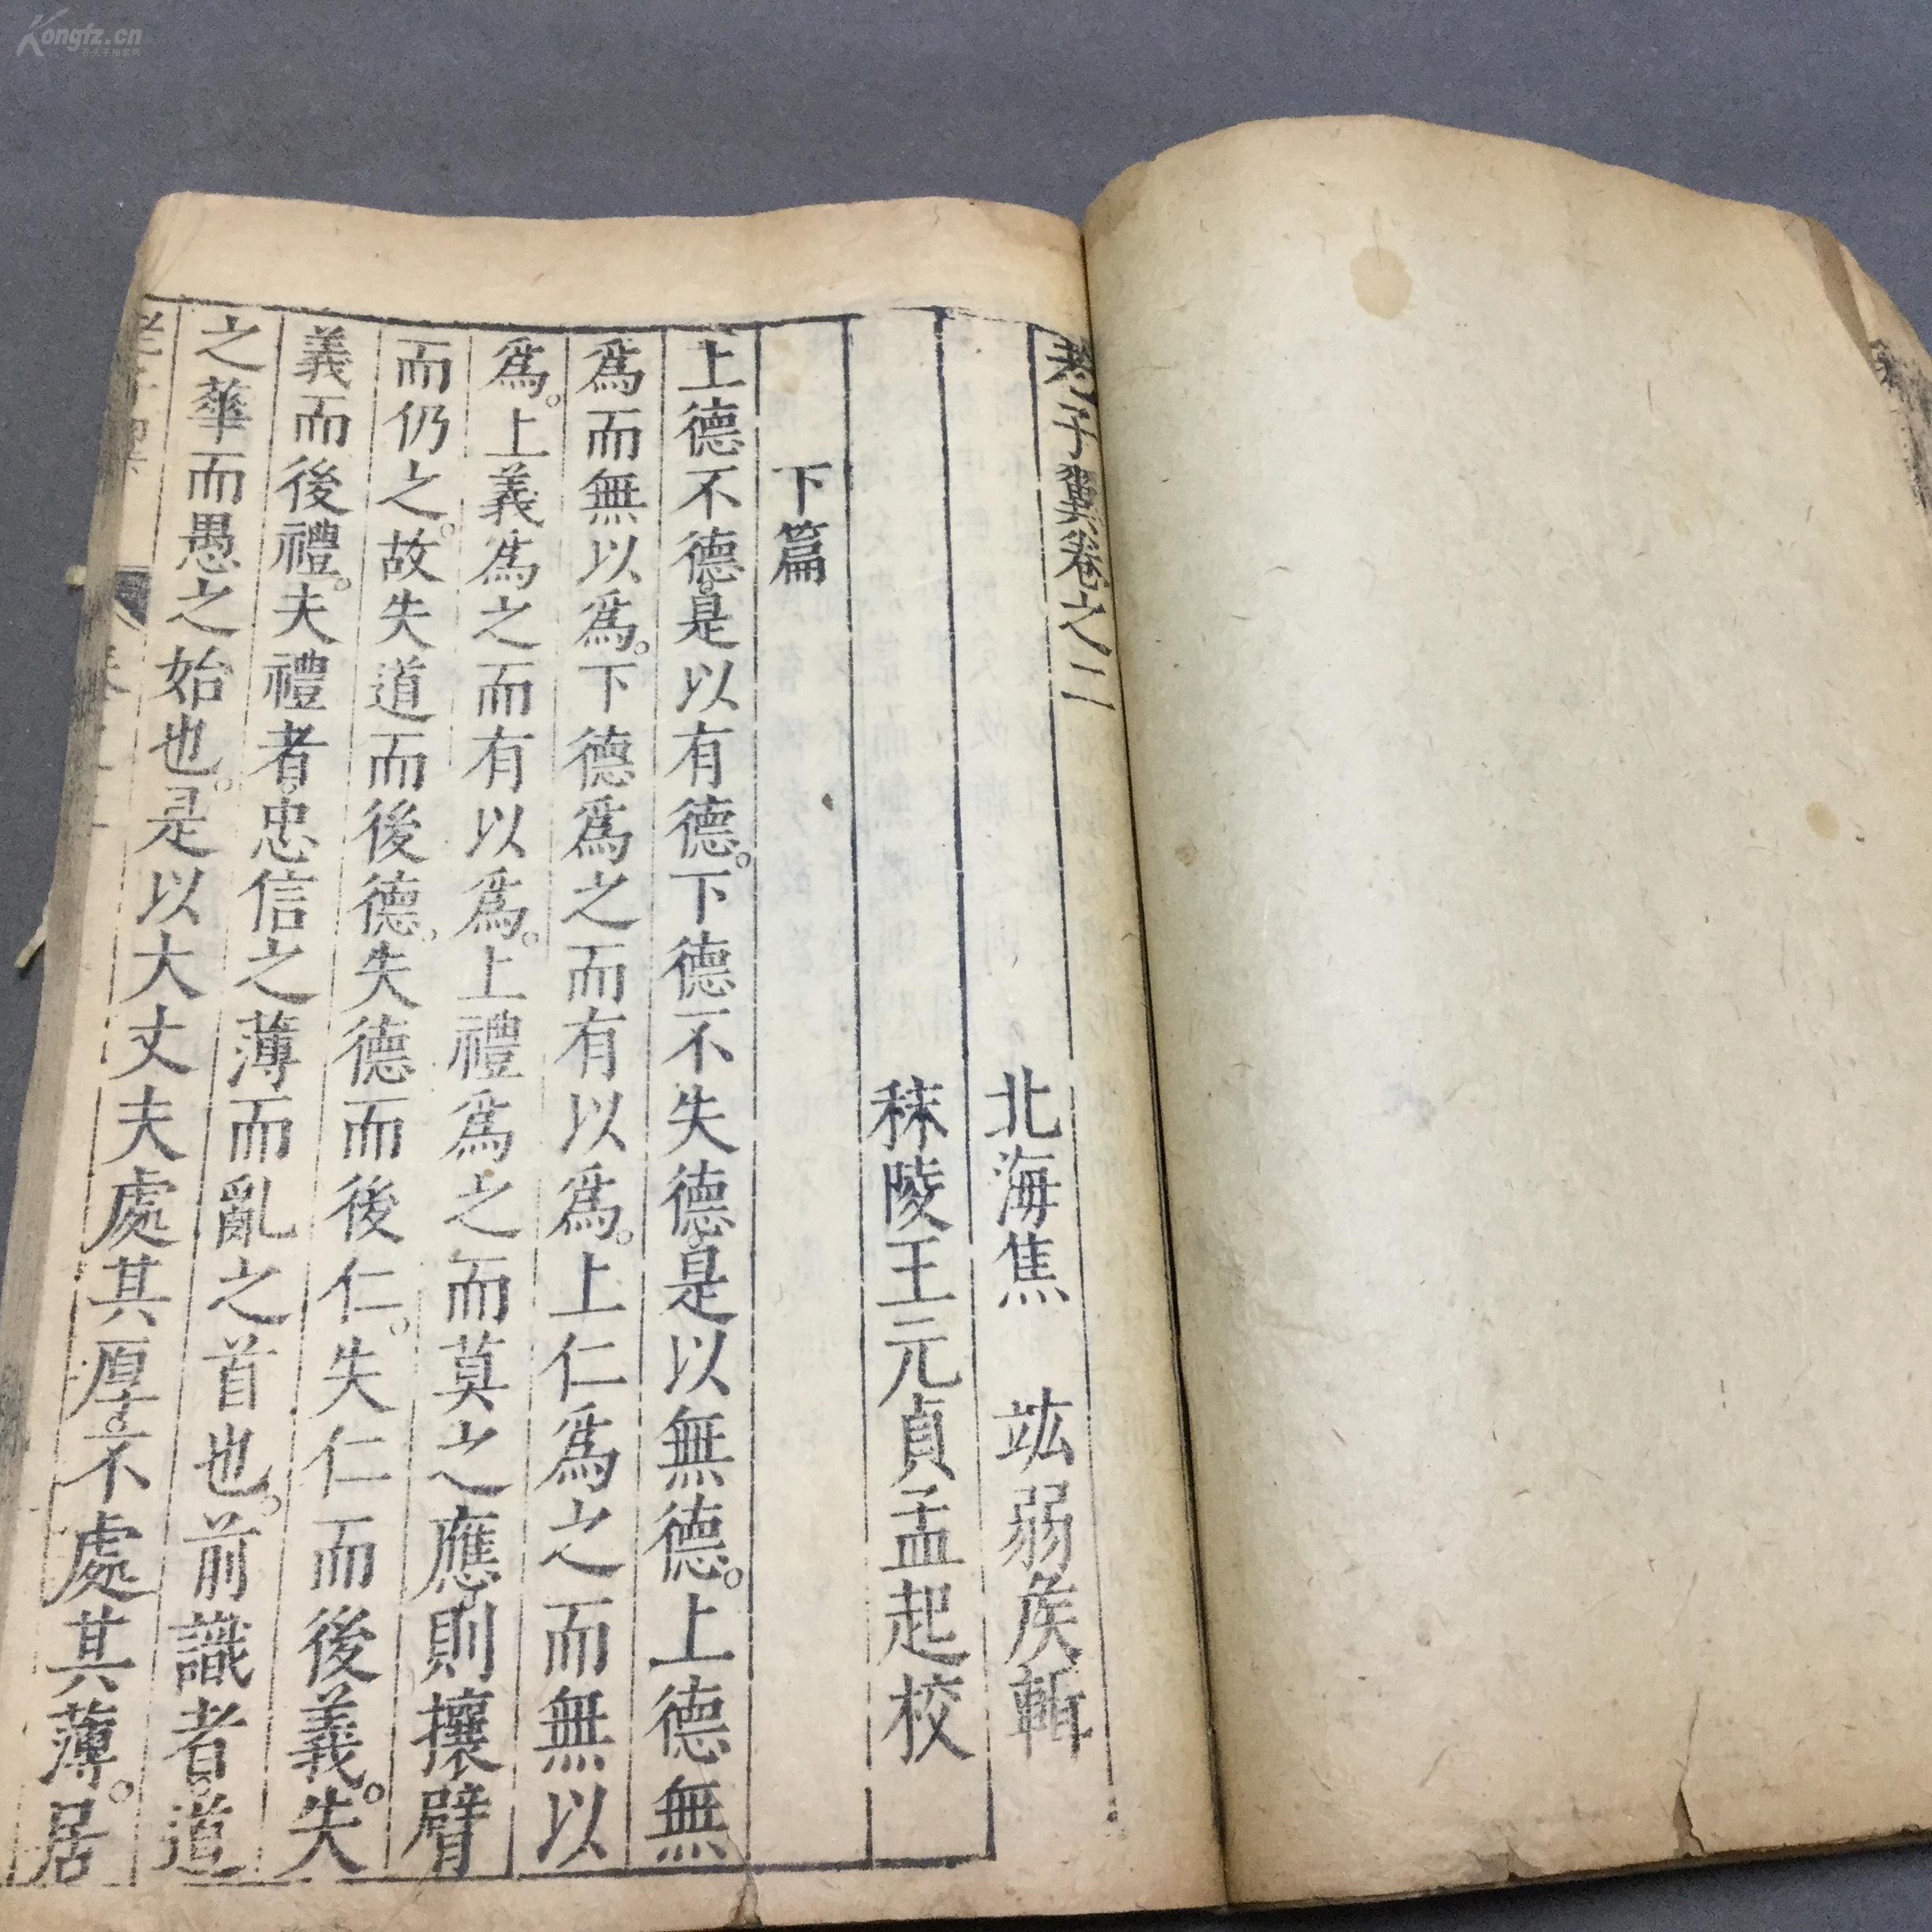 老子翼卷之二
北海焦 竑弱侯輯
秣陵王元貞孟起校
下篇
上德不德。是以有德。下德不失德。是以無德。上德無
爲而無以爲。下德爲之而有以爲。上仁爲之而無以
爲。上義爲之而有以爲。上禮爲之而莫之應。則攘臂
而仍之。故失道而後德。失德而後仁。失仁而後義。失
義而後禮。夫禮者。忠信之薄而亂之首也。前識者。道
之華而愚之始也。是以大丈夫處其厚。不處其薄。居
Kongfz.cn